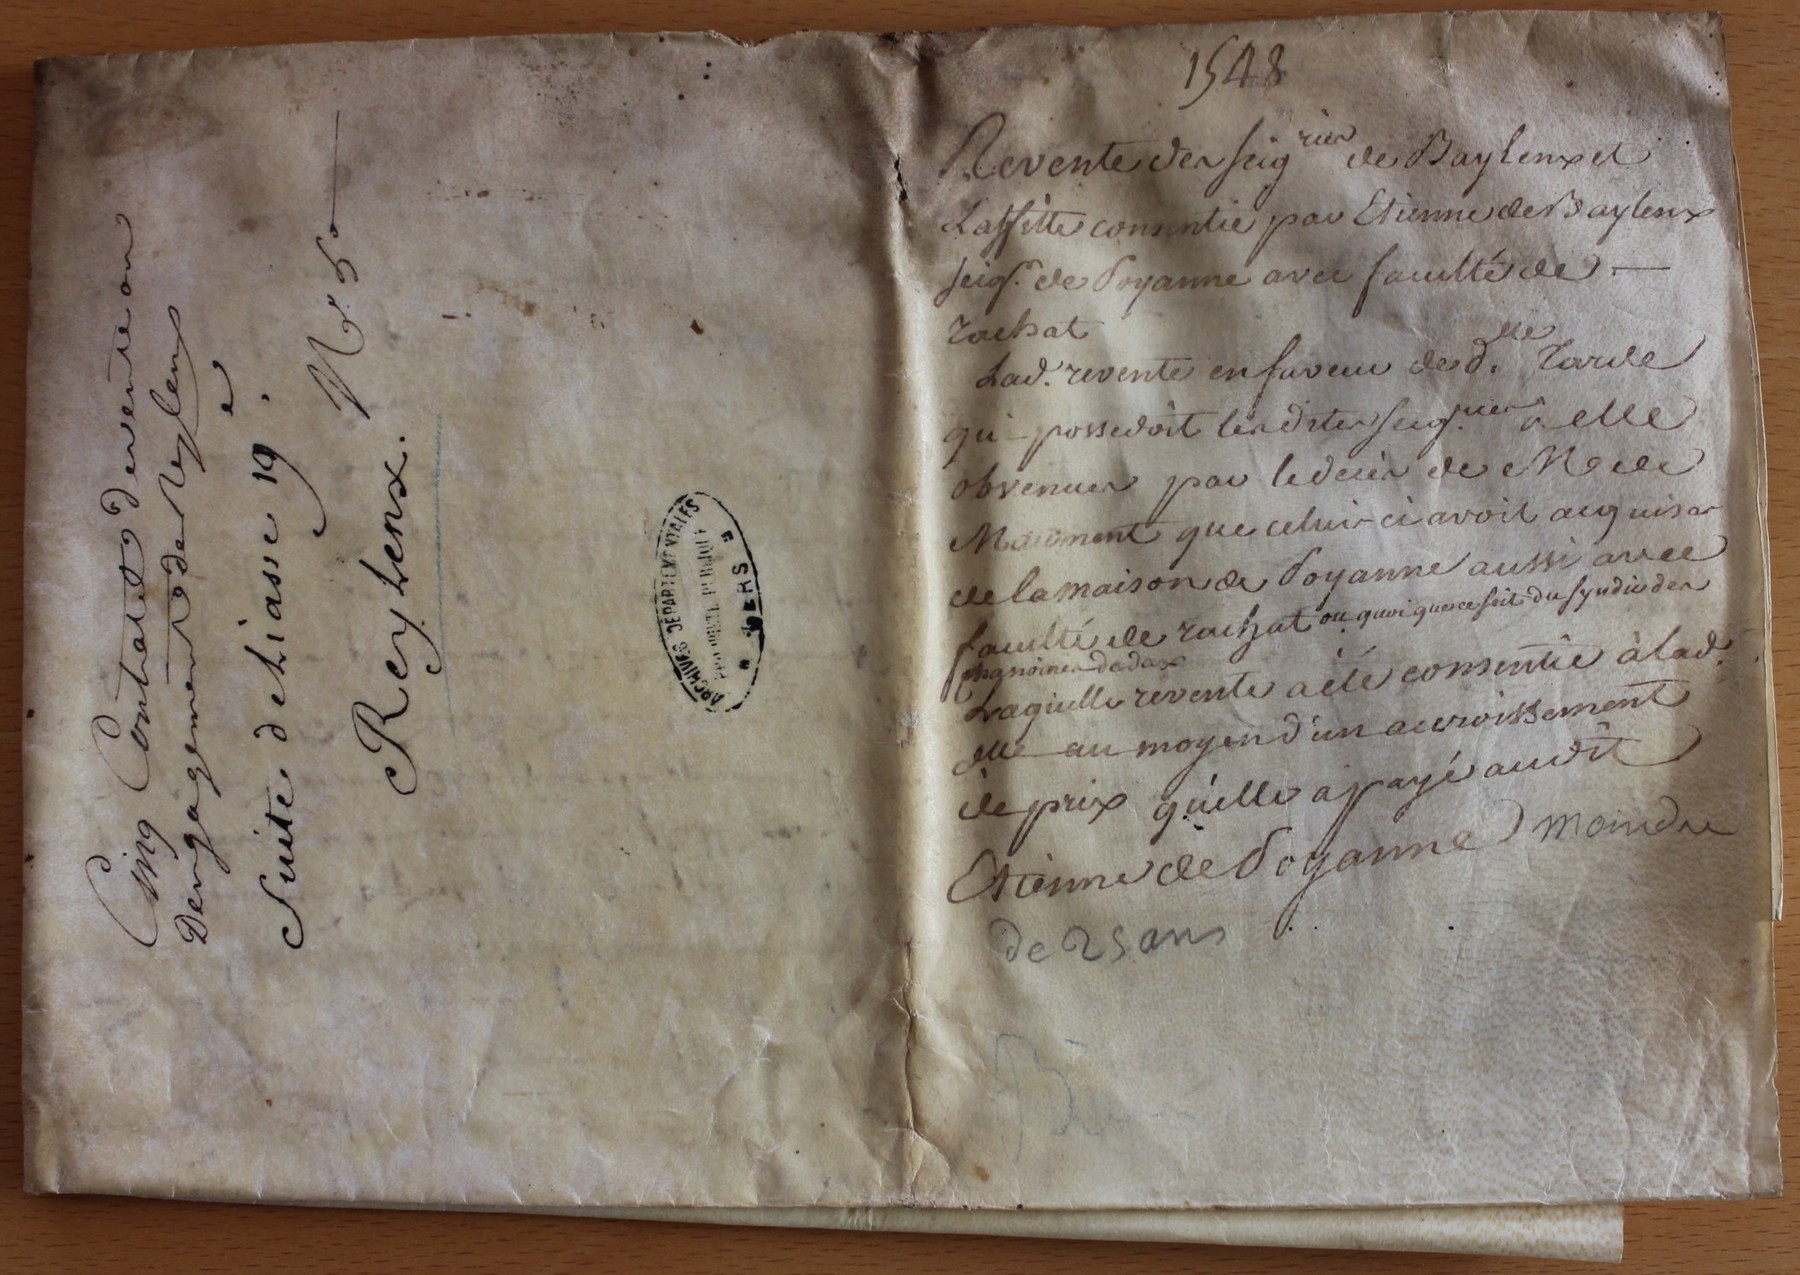 Cinq Contrats de vente ou
Dengagement de Reylens
Suite de Liasse 19e.
N.° 5
Reylenx.
ARCHIVES DÉPARTEMENTALES
PROPRIÉTÉ PUBLIQUE
GERS
1548
Revente des seigries de Baylenx et
Laffitte consentie par Etienne de Baylenx
seigr. de Poyanne avec faculté de —
rachat
Lad. revente en faveur de dlle. Tarde
qui possedoit lesdites seigries. à elle
obvenues par le décès de M de
Maumont que celui ci avoit acquises
de la maison de Poyanne aussi avec
faculté de rachat ou quoi que ce soit du syndic des
chanoines de dax
Laquelle revente a été consentie à lad.
dlle au moyen d'un accroissement
de prix qu'elle a payé audit
Etienne de Poyanne moindre
de 25 ans